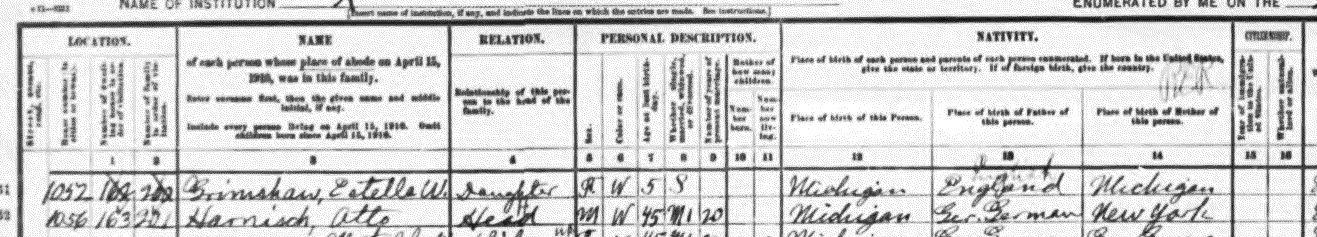 NAME OF INSTITUTION
[Insert name of institution, if any, and indicate the lines on which the entries are made. See instructions.]
ENUMERATED BY ME ON THE
LOCATION.
NAME
of each person whose place of abode on April 15, 1910, was in this family.
Enter surname first, then the given name and middle initial, if any.
Include every person living on April 15, 1910. Omit children born since April 15, 1910.
RELATION.
Relationship of this person to the head of the family.
PERSONAL DESCRIPTION.
Sex.
Color or race.
Age at last birthday.
Whether single, married, widowed, or divorced.
Number of years of present marriage.
Mother of how many children.
Number born.
Number now living.
NATIVITY.
Place of birth of each person and parents of each person enumerated. If born in the United States, give the state or territory. If of foreign birth, give the country.
Place of birth of this Person.
Place of birth of Father of this person.
Place of birth of Mother of this person.
CITIZENSHIP.
1 2 3 4 5 6 7 8 9 10 11 12 13 14 15 16
51 1052 162 202 Grimshaw, Estella W. Daughter F W 5 S Michigan England Michigan
52 1056 163 201 Harnisch, Otto Head M W 45 M1 20 Michigan Ger. German New York